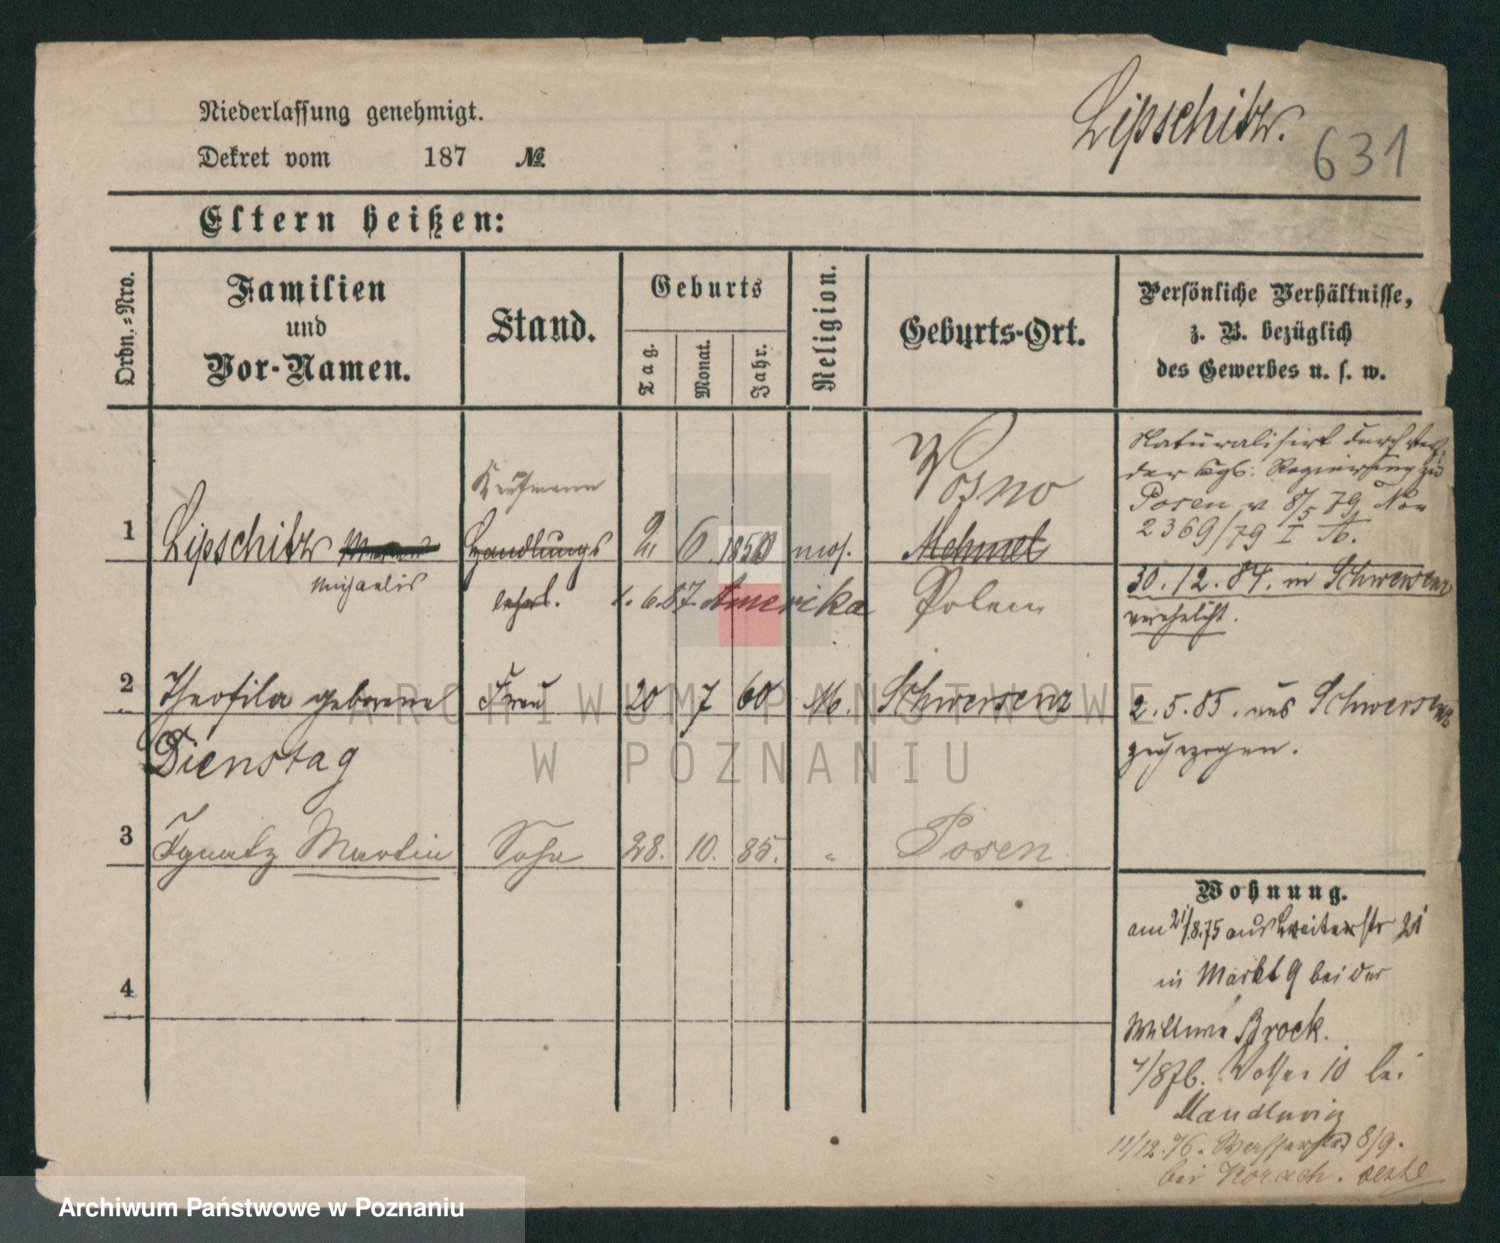 Lipschitz.
631
Niederlassung genehmigt.
Dekret vom 187 №
Eltern heißen:
Ordn.-Nro.
Familien
und
Vor-Namen.
Stand.
Geburts
Tag.
Monat.
Jahr.
Religion.
Geburts-Ort.
Persönliche Verhältnisse,
z. B. bezüglich
des Gewerbes u. s. w.
1
Lipschitz
Michaelis
Kaufmann
Handlungs
lehrl.
2 6. 1850 mos.
1. 6. 87. Amerika
Posno
Polen
Naturalisirt durch
der Kgl. Regierung zu
Posen v 8/5 79 No
2369/79 I A.
30. 12. 84. in Schwersenz
verehelicht.
2
Theofila geborene
Dienstag
Frau
20 7 60 M. Schwersenz
2. 5. 85. aus Schwersenz
zugezogen.
3
Ignatz Martin
Sohn
28. 10. 85. "
Posen
4
Wohnung.
am 21/8.75 aus Breitestr 21
in Markt 9 bei der
Wittwe Brock.
7/8 76. 10 bei
11/12. 76. Wasserstr 8/9.
bei Horach.
ARCHIWUM PAŃSTWOWE
W POZNANIU
Archiwum Państwowe w Poznaniu